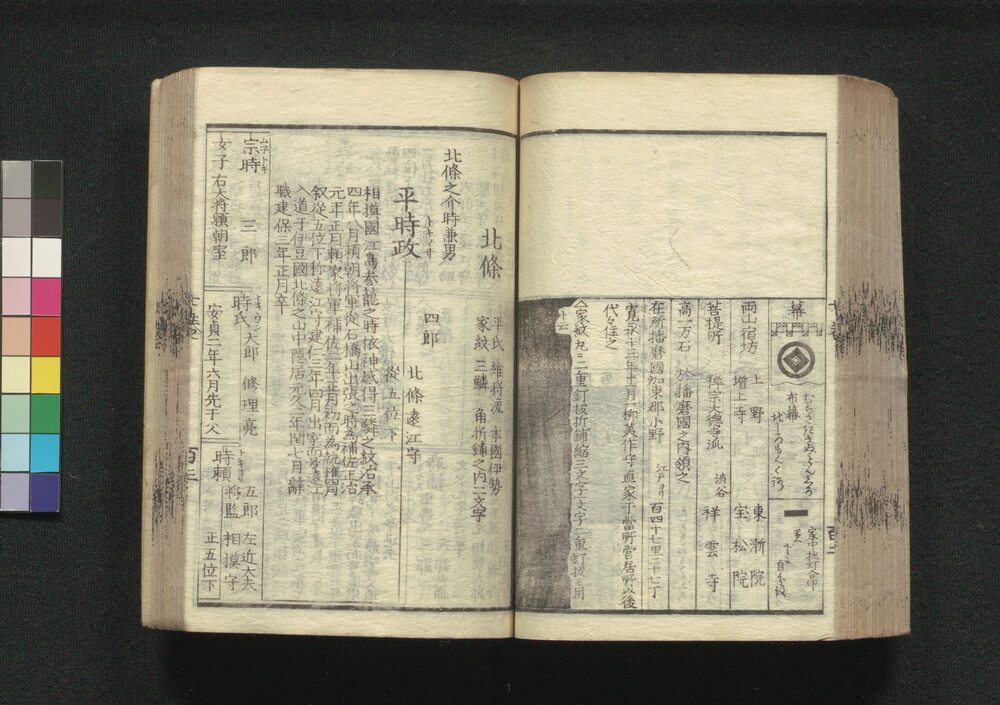 幕
布幕
家中挑灯合印
両山宿坊
上野 東漸院
増上寺 宝松院
菩提所 禅宗大徳寺派 渋谷 祥雲寺
高一万石 於播磨國之内領之
在所播磨國加東郡小野 江戸ヨリ百四十七里二十七丁
寛永十三年十一月一柳美作守直家于當所営居所政後
代々住之
家紋丸ニ二重釘抜折鋪縮三文字二文字二重釘抜ヲ用
ト云
北條
平氏 維将流 本國伊勢
家紋 三鱗 角折鋪之内二文字
北條之介時兼男
平時政
トキマサ
四郎
北條遠江守
從五位下
相摸國江島参籠之時依神感得三鱗之紋治承
四年八月頼朝将軍從石橋山出張之時為補佐正治
元年正月頼家将軍補佐二年正月初而為執権四月
叙從五位下称遠江守建仁三年四月出家
入道于伊豆國北條之山中隠居元久二年閏七月辭
職建保三年正月卒
宗時
ムネトキ
三郎
女子 右大将頼朝室
時氏
太郎 修理亮
安貞二年六月先于父
時頼
トキヨリ
五郎 左近大夫
将監 相摸守
正五位下